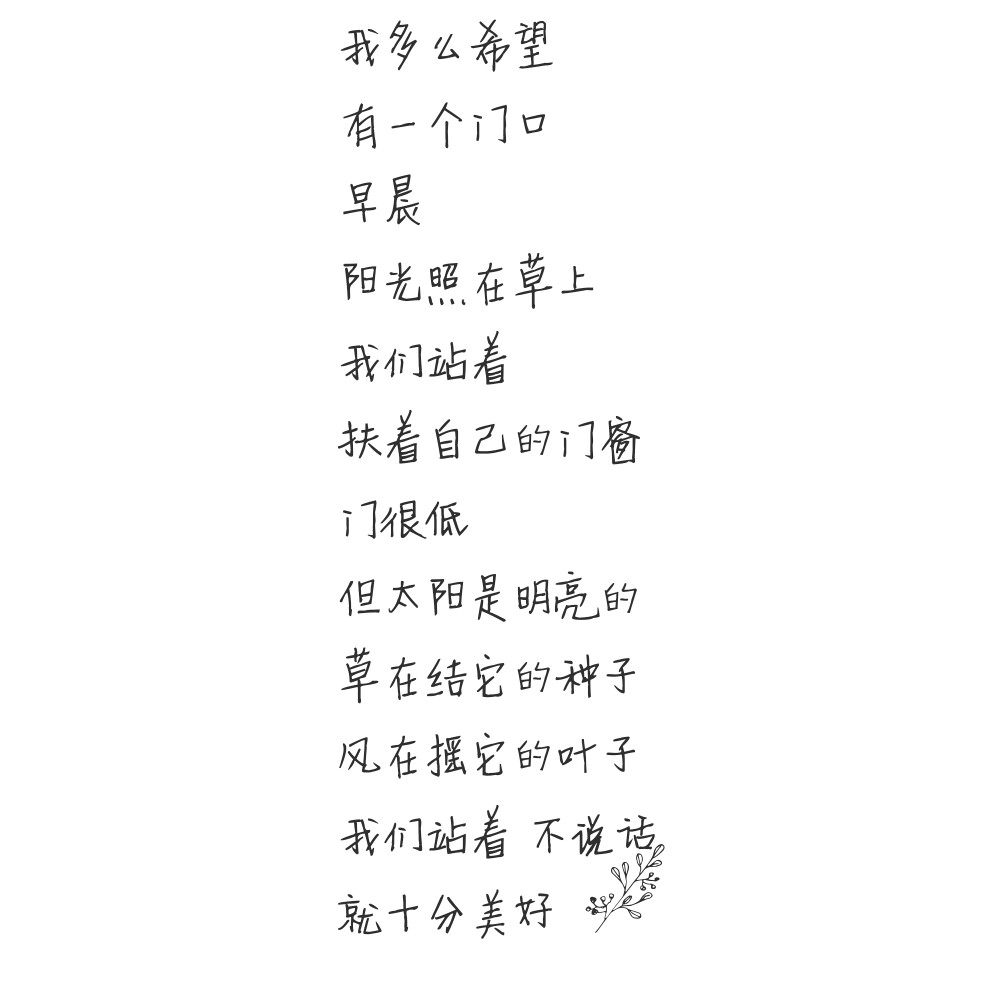 我多么希望
有一个门口
早晨
阳光照在草上
我们站着
扶着自己的门窗
门很低
但太阳是明亮的
草在结它的种子
风在摇它的叶子
我们站着 不说话
就十分美好